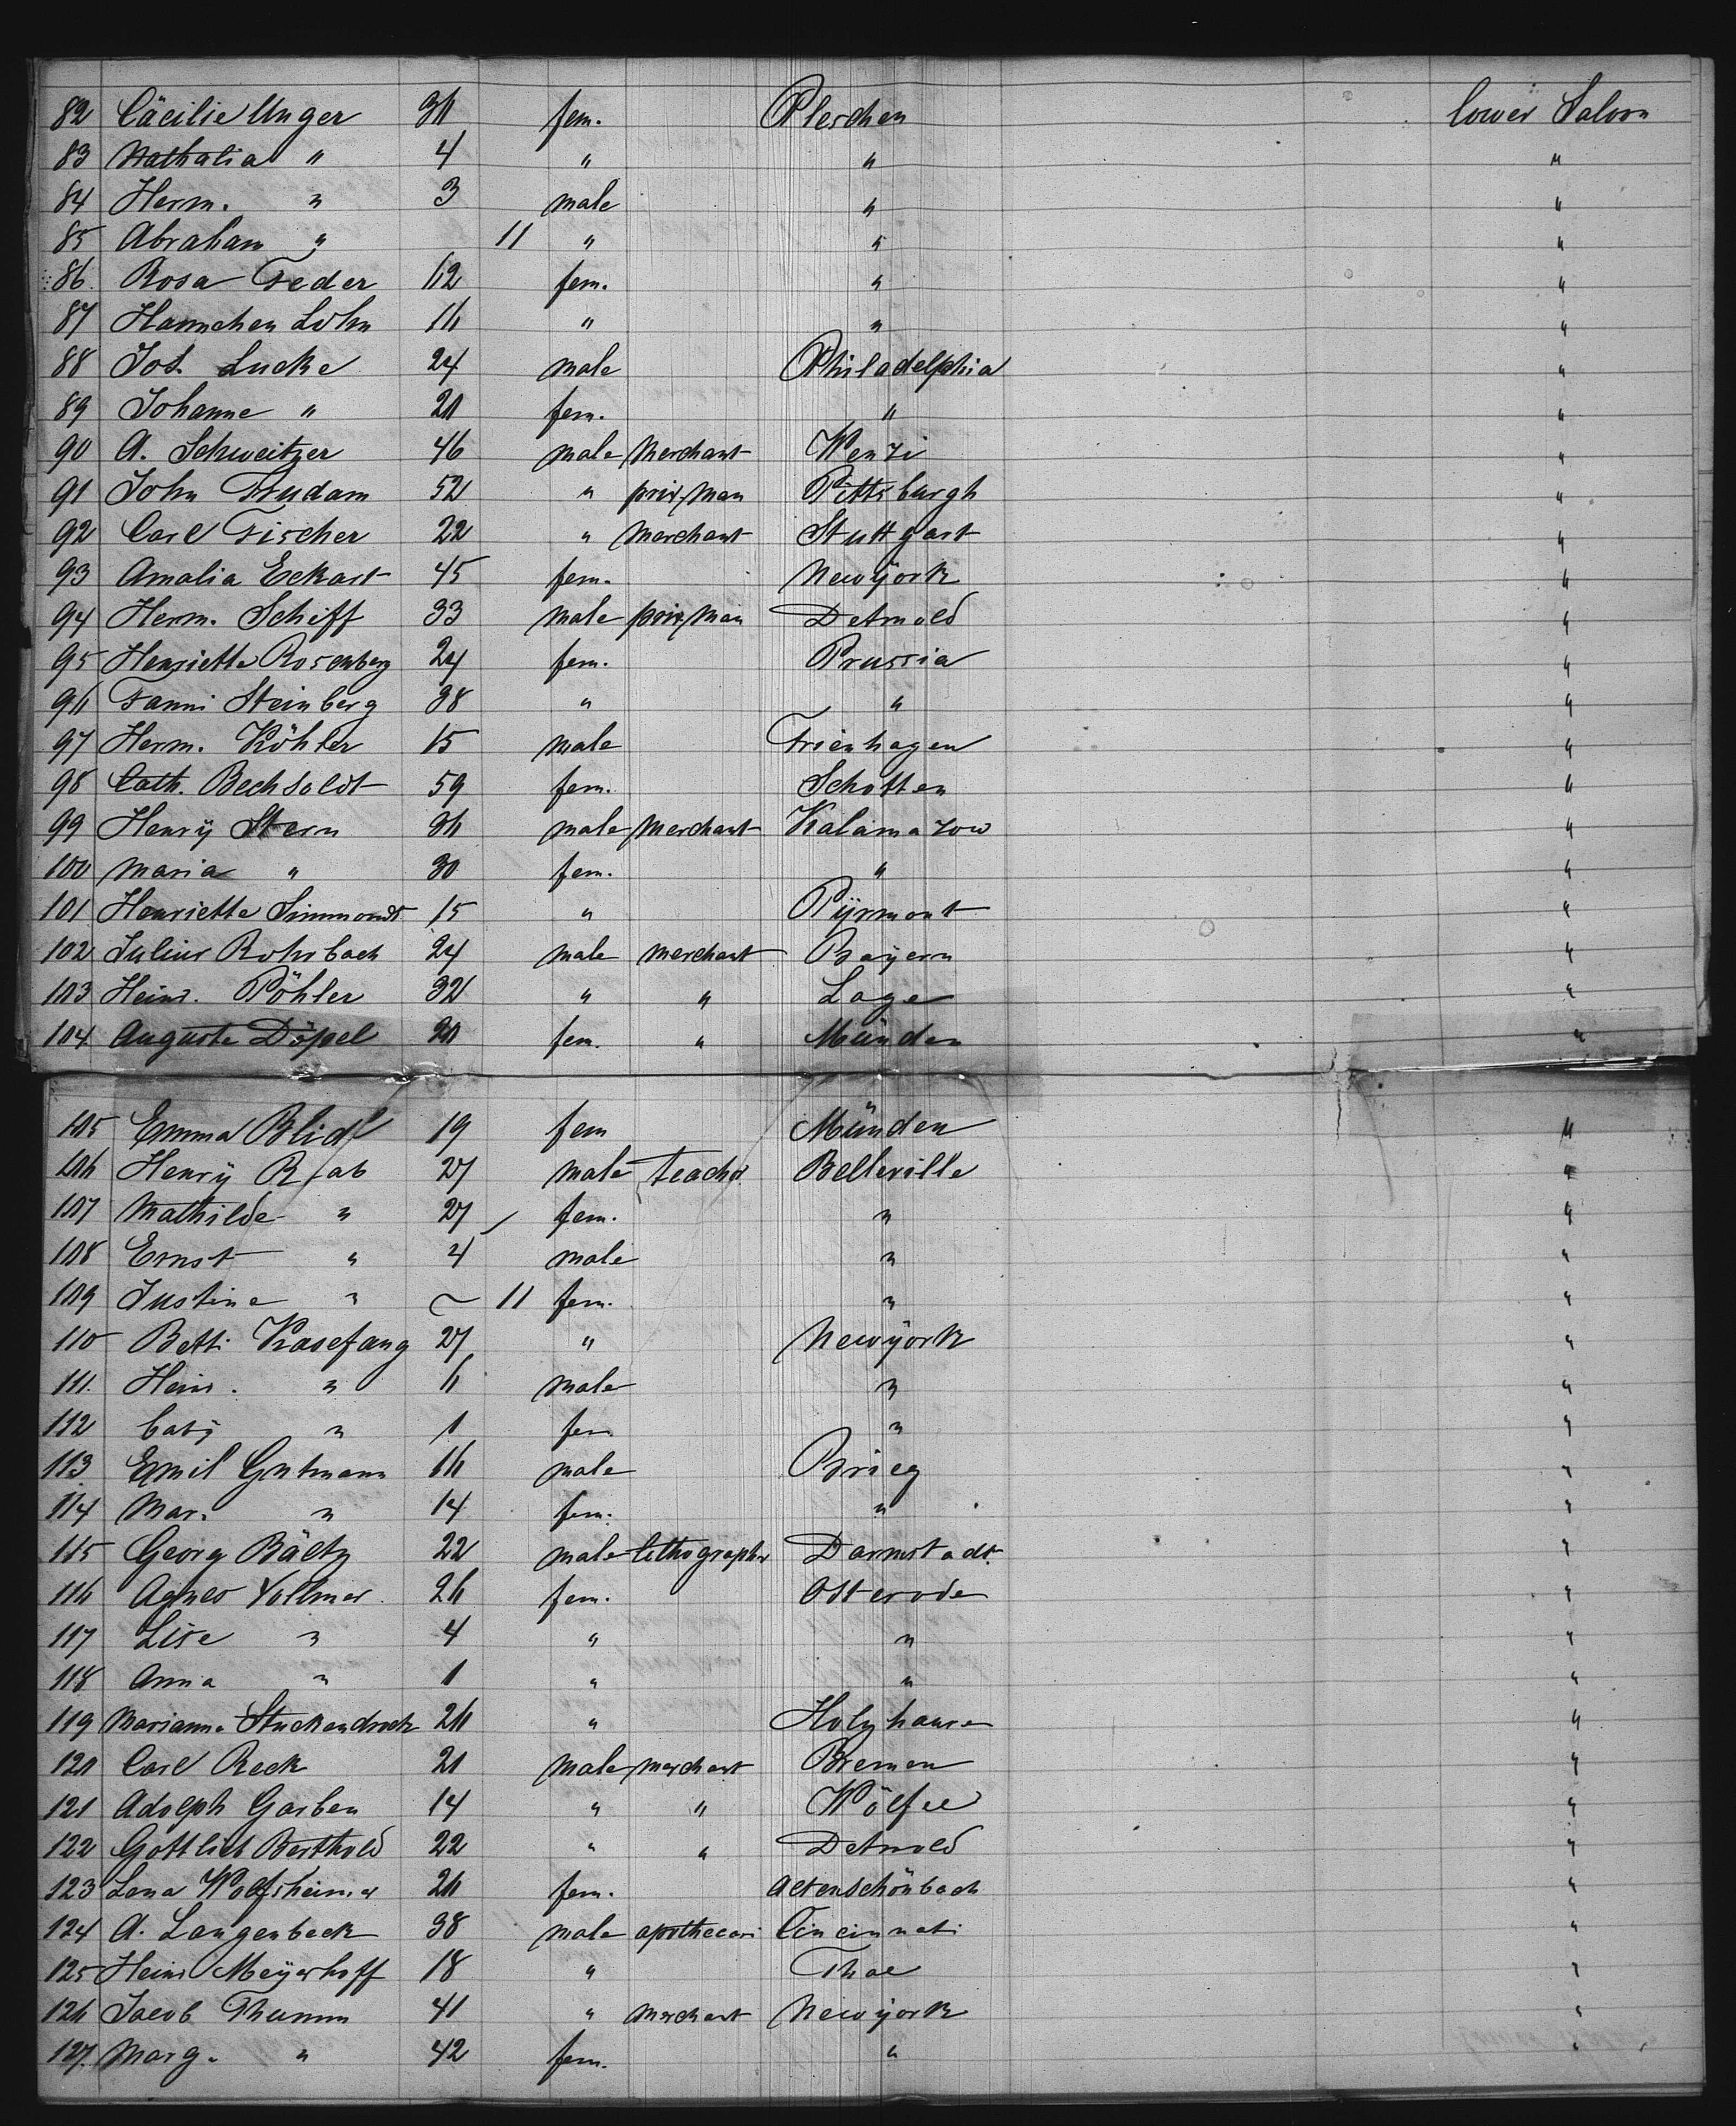 82 Cäcilie Unger 36 fem. Pleschen lower Saloon
83 Nathalia " 4 " " "
84 Herm. " 3 male " "
85 Abraham " 11 " " "
86. Rosa Feder 62 fem. " "
87 Hannchen Lohn 16 " " "
88 Jos. Lucke 24 male Philadelphia "
89 Johanne " 20 fem. " "
90 A. Schweitzer 46 male Merchant Wenzi "
91 John Trudam 52 " priv. man Pittsburgh "
92 Carl Fischer 22 " Merchant Stuttgart "
93 Amalia Eckart 45 fem. Newÿork "
94 Herm. Schiff 33 male priv. man Detmold "
95 Henriette Rosenberg 24 fem. Prussia "
96 Fanni Steinberg 38 " " "
97 Herm. Köhler 15 male Frienhagen "
98 Cath. Bechsoldt 59 fem. Schotten "
99 Henrÿ Stern 36 male Merchant Kalamazow "
100 Maria " 30 fem. " "
101 Henriette Simmonds 15 " Pÿrmont "
102 Julius Rohrbach 24 male merchant Bayern "
103 Heinr. Pöhler 32 " " Lage "
104 Auguste Döpel 20 fem. " Münden "
105 Emma Blidl 19 fem Münden "
106 Henrÿ Raab 27 male teacher Belleville "
107 Mathilde " 27 fem. " "
108 Ernst " 4 male " "
109 Justine " ~ 11 fem. " "
110 Betti Kasefang 27 " Newÿork "
111. Heinr. " 6 male " "
112 baby " 1 fem " "
113 Emil Gutmann 16 male Brieg "
114 Mar. " 14 fem. " "
115 Georg Bältz 22 male lithographer Darmstadt. "
116 Agnes Vollmer 26 fem. Osterode "
117 Lise " 4 " " "
118 Anna " 1 " " "
119 Marianne Stuckendrock 26 " Holzhausen "
120 Carl Reck 21 male merchant Bremen "
121 Adolph Garben 14 " " Wölfel "
122 Gottlieb Berthold 22 " " Detmold "
123 Lena Wolfsheimer 26 fem. Altenschönbach "
124 A. Langenbeck 38 male apothecari Cincinnati "
125 Heinr Meÿerhoff 18 " Thal "
126 Jacob Thumm 41 " Merchant Newÿork "
127. Marg. " 42 fem. " "